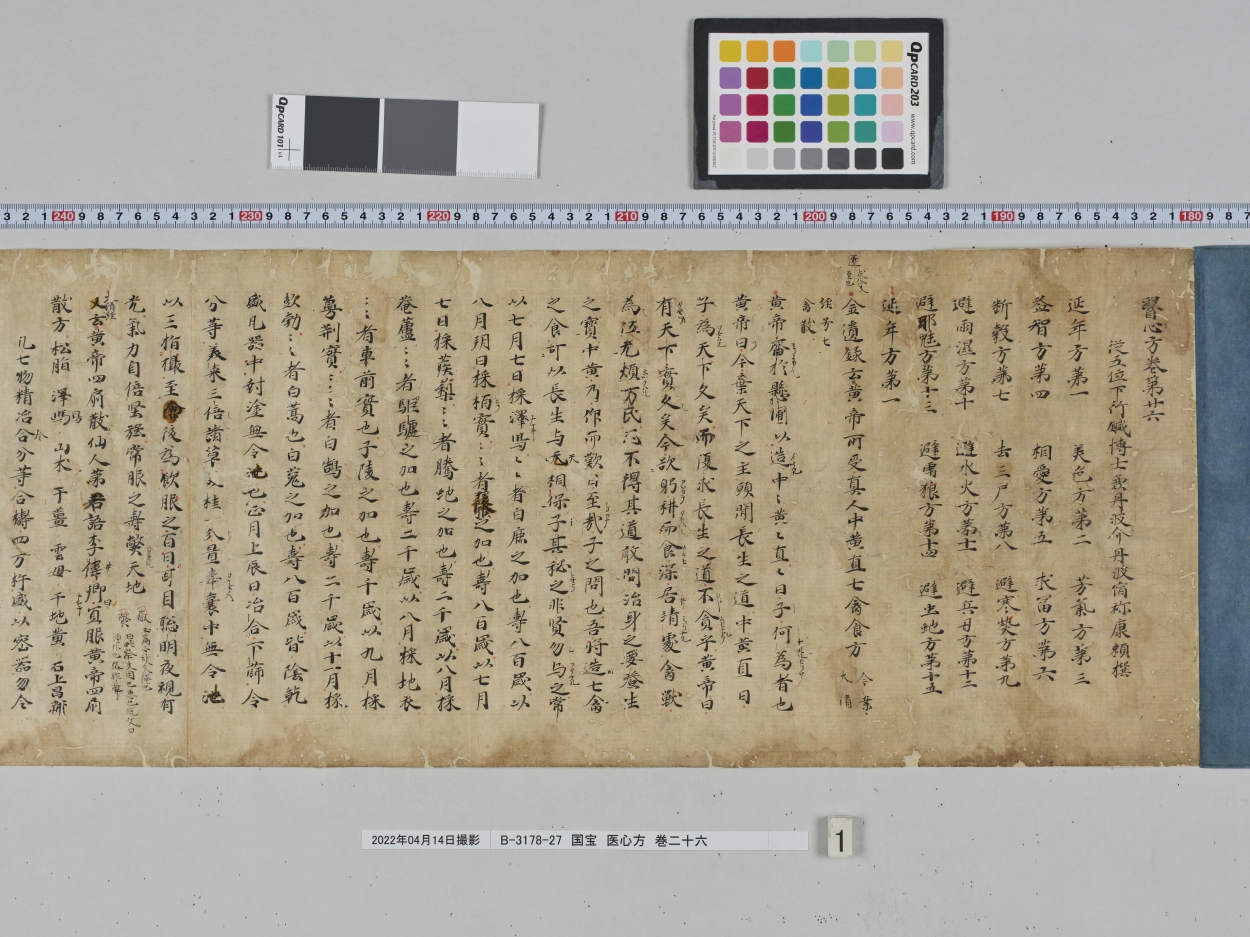 QPCARD 101 v4
QPCARD 203 www.qpcard.com
3 2 1 240 9 8 7 6 5 4 3 2 1 230 9 8 7 6 5 4 3 2 1 220 9 8 7 6 5 4 3 2 1 210 9 8 7 6 5 4 3 2 1 200 9 8 7 6 5 4 3 2 1 190 9 8 7 6 5 4 3 2 1 180 9 8 7
醫心方卷第廿六
從五位下行鍼博士兼丹波介丹波宿祢康頼撰
延年方第一 美色方第二 芳氣方第三
益智方第四 相愛方第五 求冨方第六
断穀方第七 去三尸方第八 避寒熱方第九
避雨濕方第十 避水火方第十一 避兵刃方第十二
避耶魅方第十三 避虎狼方第十四 避虫地方第十五
延年方第一
金遺録云黄帝所受真人中黄直七禽食方
黄帝齋於懸圃以造中黄直日子何為者也
黄帝曰今弃天下之主願聞長生之道中黄直曰
子為天下久矣而復求長生之道不貪乎黄帝曰
有天下實久矣今欲躬耕而食深居靖處禽獸
為伍无煩万民恐不得其道敢問治身之要養生
之寶中黄乃仰而歎曰至哉子之問也吾将造七禽
之食可以長生与天相保子其秘之非賢勿与之常
以七月七日採澤瀉々者白鹿之加也壽八百歳以
八月朔日採栢實々者猨之加也壽八百歳以七月
七日採蒺蔾々者騰虵之加也壽二千歳以八月採
菴蘆々者駏驉之加也壽二千歳以八月採地衣
々者車前實也子陵之加也壽千歳以九月採
蔓荆實々者白鵠之加也壽二千歳以十一月採
彭勃々者白蒿也白菟之加也壽八百歳皆陰乾
盛凡器中封塗無令泄也正月上辰日冶合下篩令
分等美来三倍諸草
以三指撮至後為飲服之百日耳目聡明夜視有
光氣力自倍堅強常服之壽弊天地
又云黄帝四扇散仙人
散方 松脂 澤瀉 山朮 干薑 雲母 干地黄 石上昌蒲
凡七物精冶合分等合擣四万杵盛以密器勿令
2022年04月14日撮影 B-3178-27 国宝 医心方 巻二十六
1